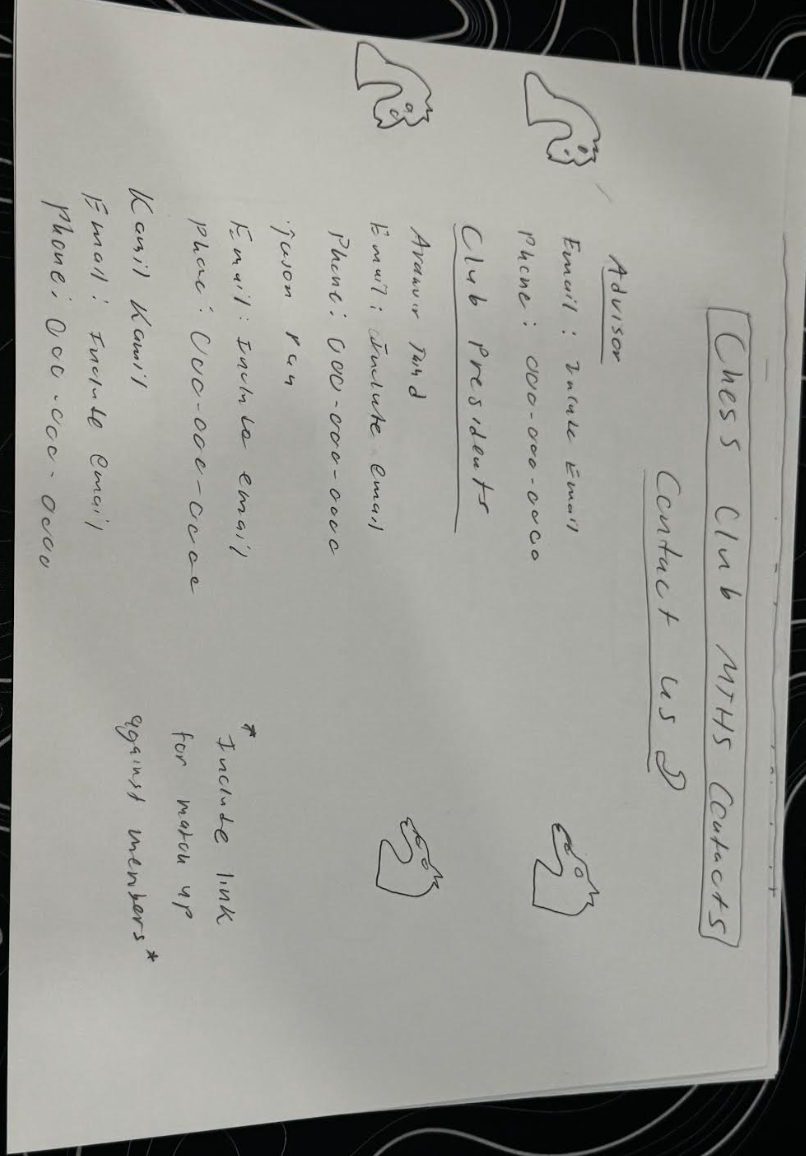 Chess Club MTHS Contacts
Contact us
Advisor
Email: Include Email
Phone: 000-000-0000
Club Presidents
Email: Include email
Phone: 000-000-0000
Jason
Email: Include email
Phone: 000-000-0000
Kamil Kamil
Email: Include email
Phone: 000-000-0000
*Include link
for match up
against members*